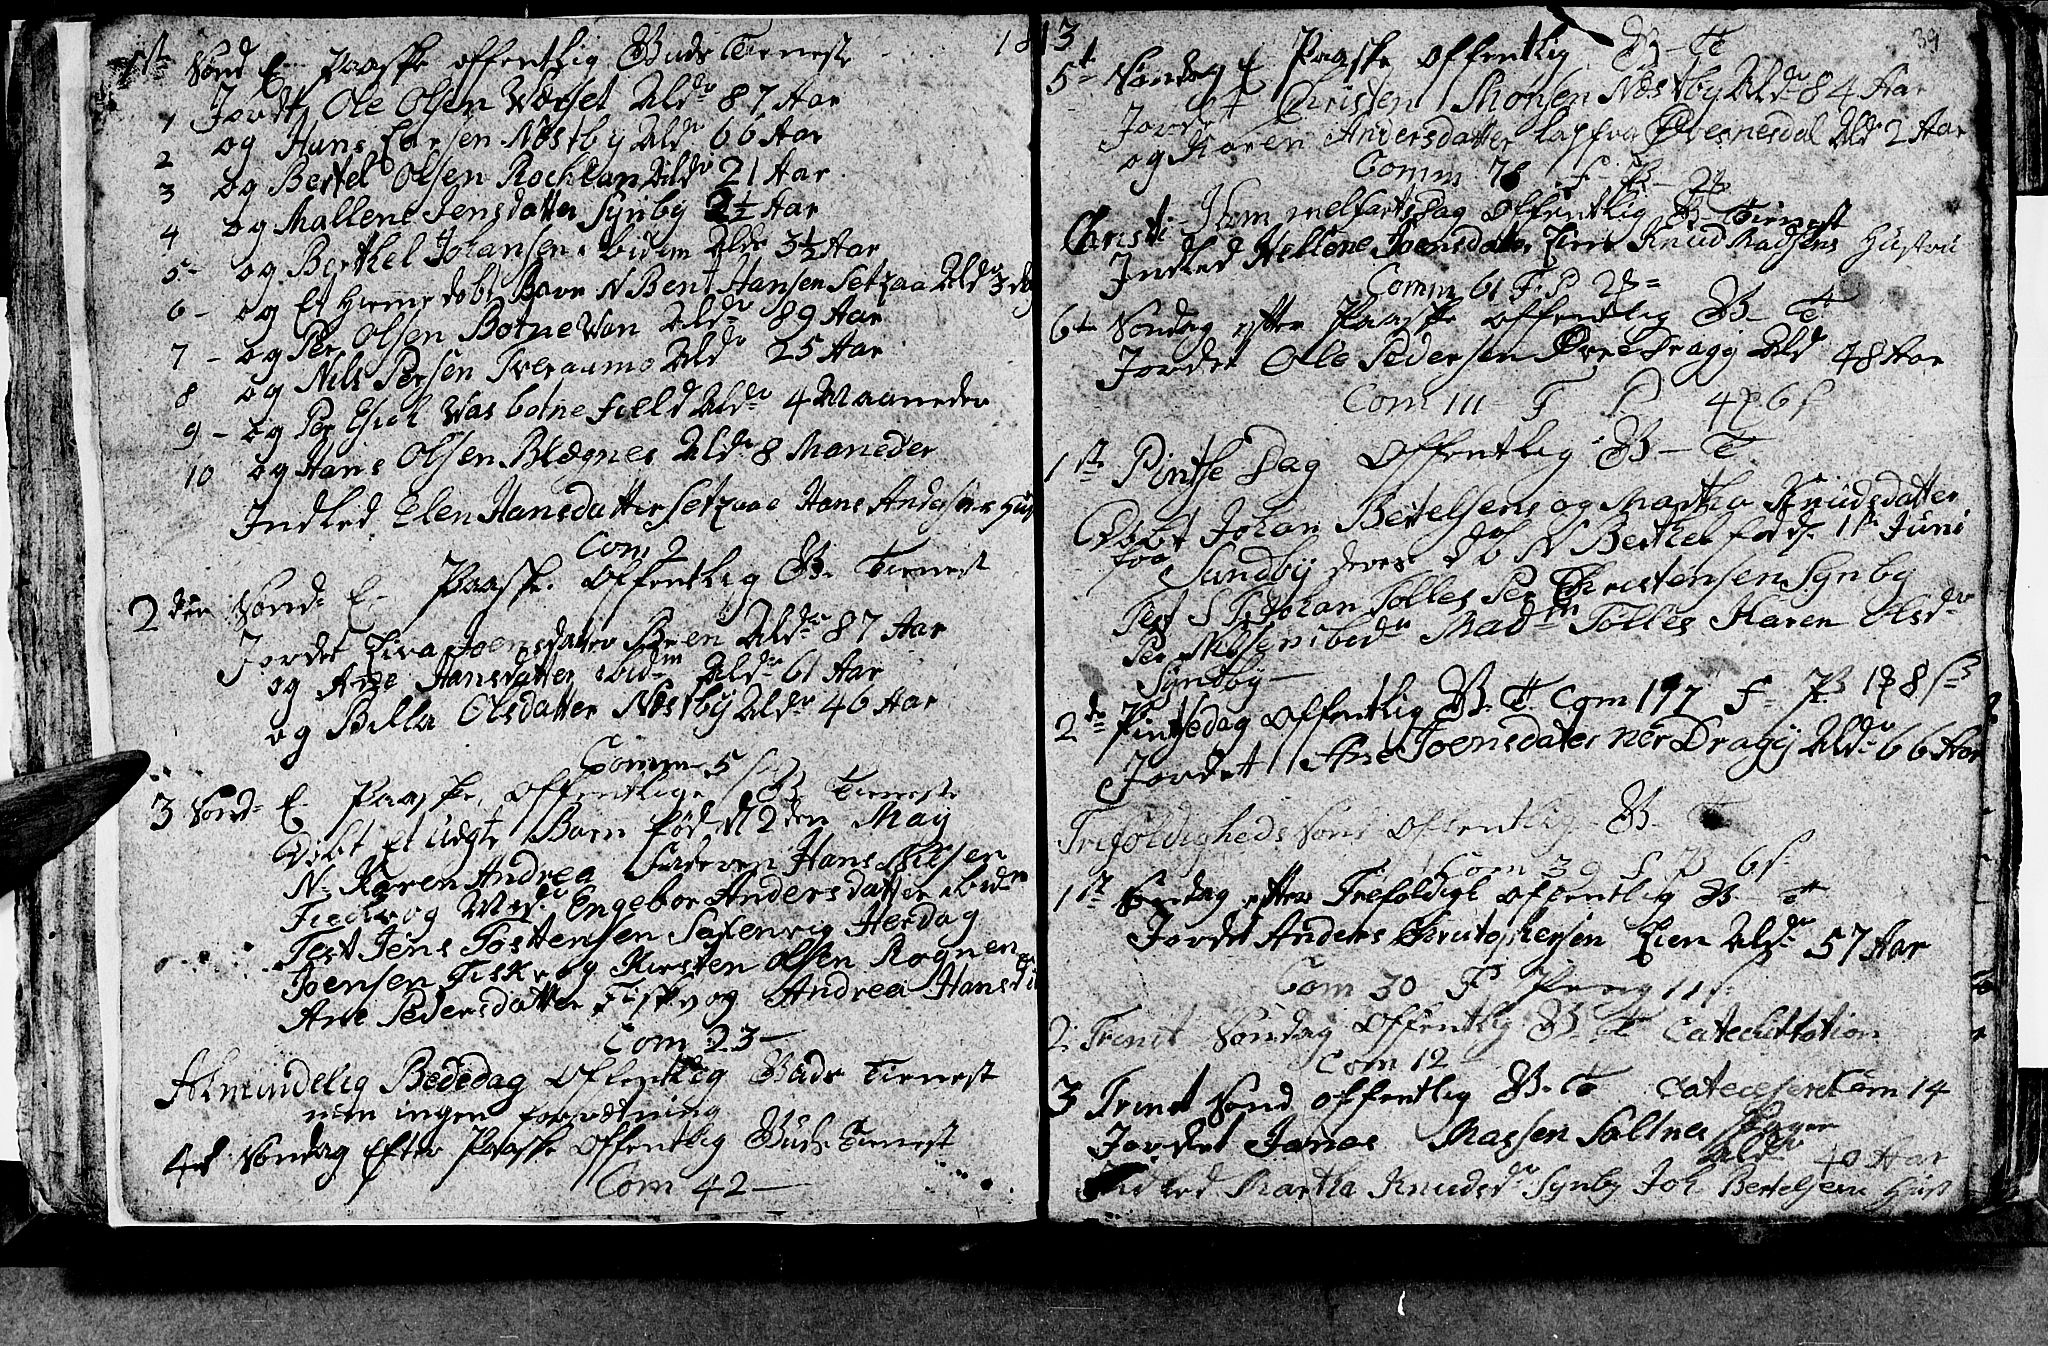 1813
1ste Sønd E Paaske offentlig Guds Tieneste
1 Jordet Ole Olsen Aldr 87 Aar
2 og Hans Nøstby Aldr 66 Aar
3 og Bertel Olsen Rochlan Aldr 21 Aar
4 og Mallene Jensdatter Synby 2½ Aar
5 og Berthel Johansen ibidem Aldr 3½ Aar
6 og Et Hiemmedøbt Barn N Bent Hansen Setzaa Aldr 3 d
7 og Per Olsen Botne Wan Aldr 89 Aar
8 og Nils Persen Tveraamo Aldr 25 Aar
9 og Per Wasbotnefield Aldr 4 Maaneder
10 og Hans Olsen Aldr 8 Maneder
Indled Elen Hansdatter Setzaae Hans Andersens Hus
Com 2
2den Sønd E Paaske Offentlig G Tienest
Jordet Joensdater Aldr 87 Aar
og Ane Hansdatter ibidm Aldr 61 Aar
og Pilla Olsdatter Nøstby Aldr 46 Aar
Comm 5
3 Sønd E Paaske offentlige G Tieneste
Døbt et uegte Barn fød d 2den May
N Karen Andrea Faderen Hans Nilsen
og Mod Engebor Andersdatter ibidm
Test Jens Tostensen Saxenvig Herdag
Joensen Fiskv og Kirsten Olsen Rognen
Ane Pedersdatter Fiskv og Andrea Hansd
Com 23
Almindelig Bededag Offentlig Guds Tienest
men ingen forretning
4de Søndag Efter Paaske offentlig Guds Tienest
Com 42
39
5te Søndag E Paaske offentlig G T
Jordet Christen Monsen Nøstby Aldr 84 Aar
og Karen Andersdatter lapfra Evenesdal Aldr 2 Aar
Comm 78 F P 2
Christi Himmelfartsdag offentlig G Tienest
Indled Hellene Joensdater Knud Madsens Hustru
Comm 61 F P 28
6te Søndag efter Paaske offentlig G T
Jordet Olle Pedersen Øvre Dragy Ald 48 Aar
Com 111 F P 4 6 s
1ste Pintse Dag offentlig G T
Døbt Johan Bertelsens og Martha Knudsdatter
fra Sundby deres db N Berthel født 1st Juni
Test Johan Tolles Per Christensen Synby
Per Nilsen ibdm Madm Tolles Karen Olsdr
Synby
2den Pintsedag offentlig G T Com 197 F P 1 8 s
Jordet Ane Joensdater ner Dragy Aldr 66 Aar
Trefoldigheds Sønd offentlig G T
Com 39 F P 6 s
1ste Søndag efter Trefoldigt offentlig G T
Jordet Anders Christophersen Aldr 57 Aar
Com 30 F Peng 11 s
2 Trenit Søndag offentlig G T Catechitation
Com 12
3 Trenit Sønd offentlig G T Com 14
Jordet Jonas Massen Saltnes
Aldr 40 Aar
Indled Martha Knudsdr Synby Joh Bertelsens Hust